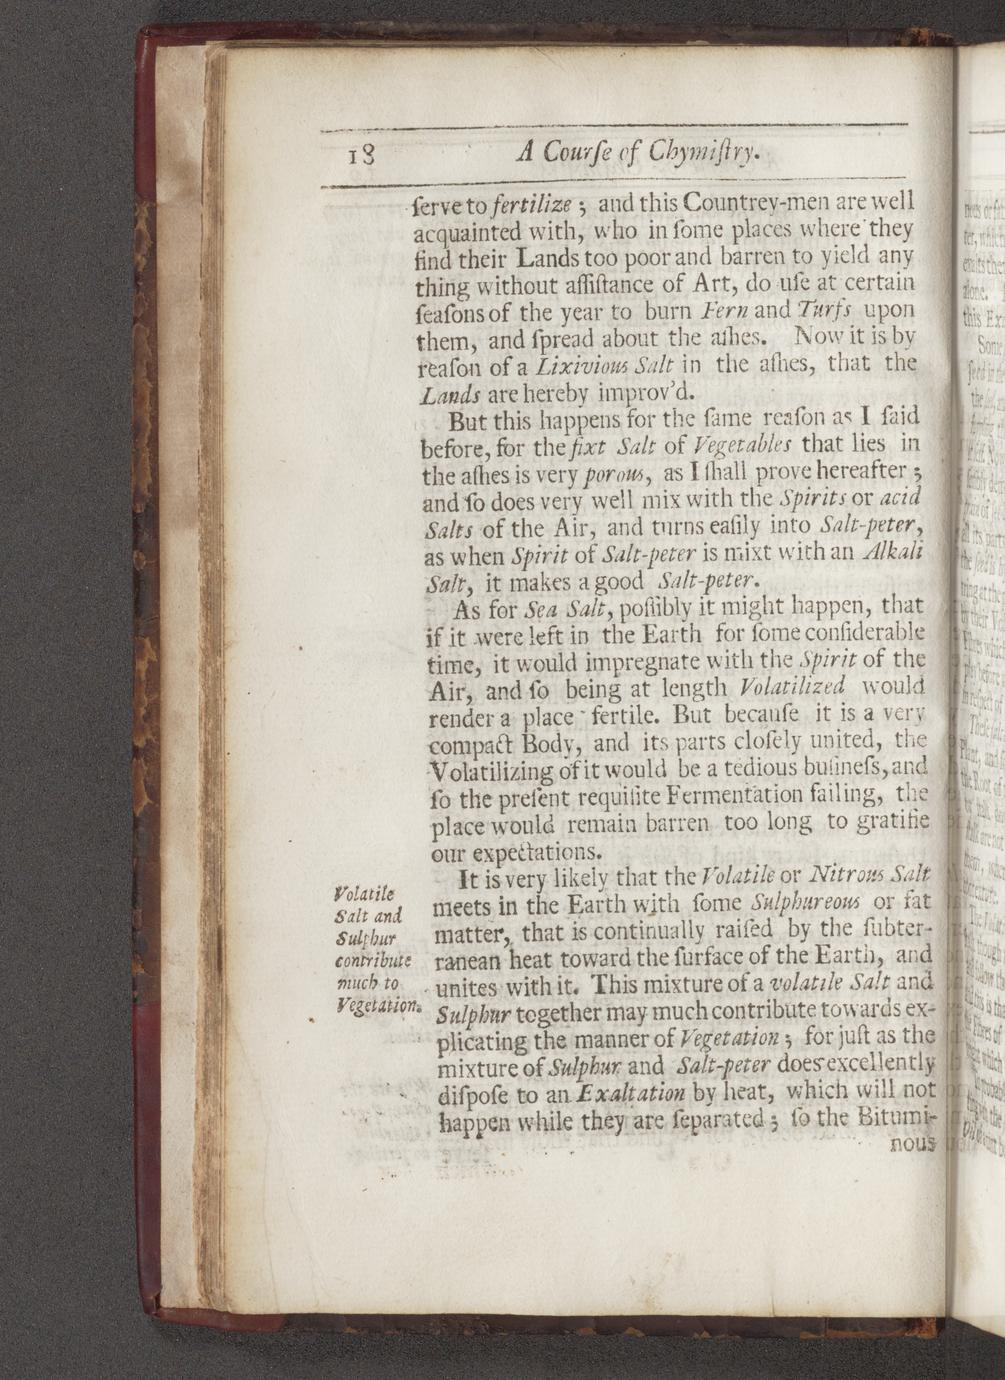 18
A Courſe of Chymiſtry.
ſerve to fertilize ; and this Countrey-men are well
acquainted with, who in ſome places where they
find their Lands too poor and barren to yield any
thing without aſſiſtance of Art, do uſe at certain
ſeaſons of the year to burn Fern and Turfs upon
them, and ſpread about the aſhes. Now it is by
reaſon of a Lixivious Salt in the aſhes, that the
Lands are hereby improv'd.
But this happens for the ſame reaſon as I ſaid
before, for the fixt Salt of Vegetables that lies in
the aſhes is very porous, as I ſhall prove hereafter ;
and ſo does very well mix with the Spirits or acid
Salts of the Air, and turns eaſily into Salt-peter,
as when Spirit of Salt-peter is mixt with an Alkali
Salt, it makes a good Salt-peter.
As for Sea Salt, poſſibly it might happen, that
if it were left in the Earth for ſome conſiderable
time, it would impregnate with the Spirit of the
Air, and ſo being at length Volatilized would
render a place fertile. But becauſe it is a very
compact Body, and its parts cloſely united, the
Volatilizing of it would be a tedious buſineſs, and
ſo the preſent requiſite Fermentation failing, the
place would remain barren too long to gratifie
our expectations.
It is very likely that the Volatile or Nitrous Salt
meets in the Earth with ſome Sulphureous or fat
matter, that is continually raiſed by the ſubter-
ranean heat toward the ſurface of the Earth, and
unites with it. This mixture of a volatile Salt and
Sulphur together may much contribute towards ex-
plicating the manner of Vegetation ; for juſt as the
mixture of Sulphur and Salt-peter does excellently
diſpoſe to an Exaltation by heat, which will not
happen while they are ſeparated ; ſo the Bitumi-
nous
Volatile
Salt and
Sulphur
contribute
much to
Vegetation.